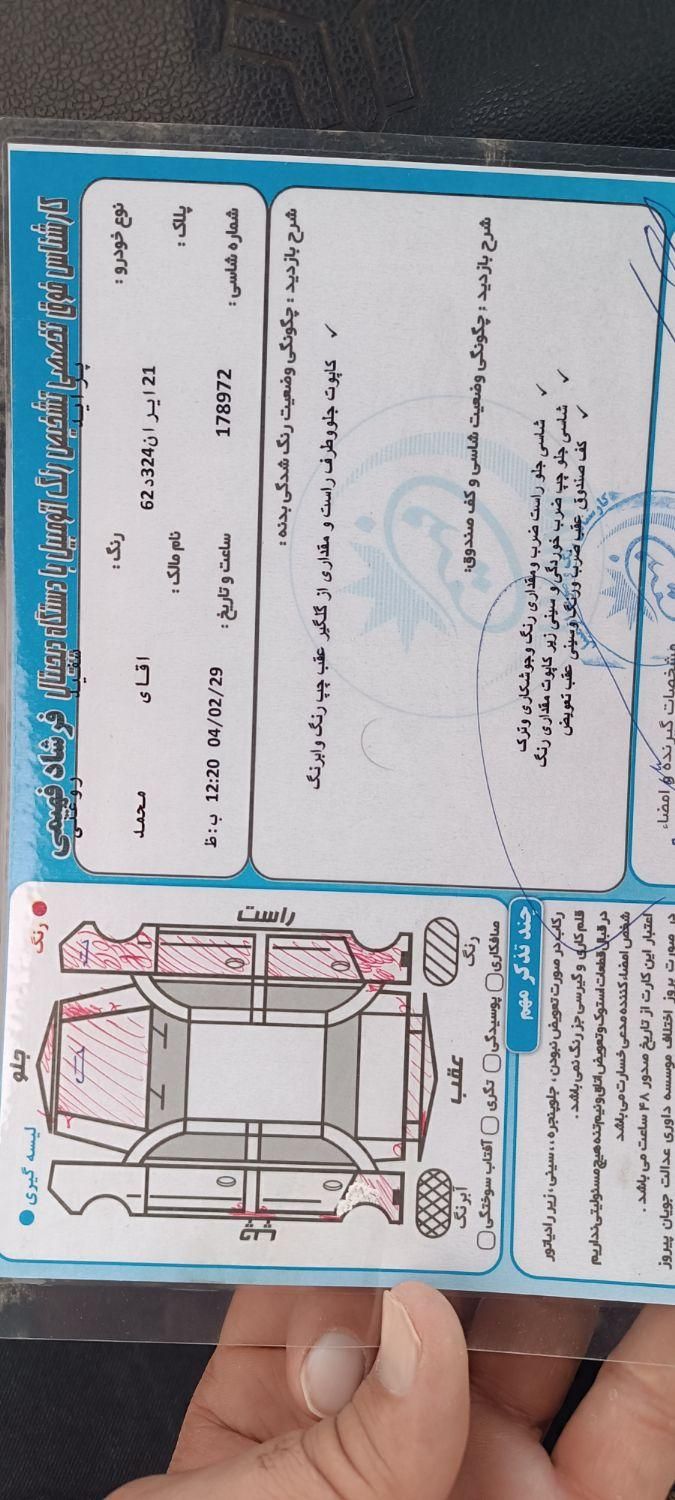 کارشناس فوق تخصصی تشخیص رنگ اتومبیل با دستگاه دیجیتال فرشاد فهیمی
نوع خودرو : پراید
رنگ : سفید
روغنی
پلاک : 21 ایران324د62
نام مالک : اقای محمد
شماره شاسی : 178972
ساعت و تاریخ : 04/02/29 12:20 ب:ظ
شرح بازدید : چگونگی وضعیت رنگ شدگی بدنه :
✓ کاپوت جلو وطرف راست و مقداری از گلگیر عقب چپ رنگ وابرنگ
شرح بازدید : چگونگی وضعیت شاسی و کف صندوق:
✓ شاسی جلو راست ضرب ومقداری رنگ وجوشکاری وترک
✓ شاسی جلو چپ ضرب خوردگی و سینی زیر کاپوت مقداری رنگ
✓ کف صندوق عقب ضرب ورنگ وسینی عقب تعویض
مشخصات گیرنده و امضاء
رنگ
لیسه گیری
جلو
راست
چپ
عقب
ت
ت
رنگ
آبرنگ
صافکاری
پوسیدگی
تگری
آفتاب سوختگی
چند تذکر مهم
رکاب در صورت تعویض نبودن ، جلوپنجره ، سینی ، زیر رادیاتور
قلم کاری و گیرسی جز رنگ نمی باشد .
در قبال قطعات استوک و تعویض اتاق و نیم زنده هیچ مسئولیتی نداریم
شخص امضاء کننده مدعی خسارت می باشد
اعتبار این کارت از تاریخ صدور ۴۸ ساعت می باشد .
در صورت بروز اختلاف موسسه داوری عدالت جویان پیروز